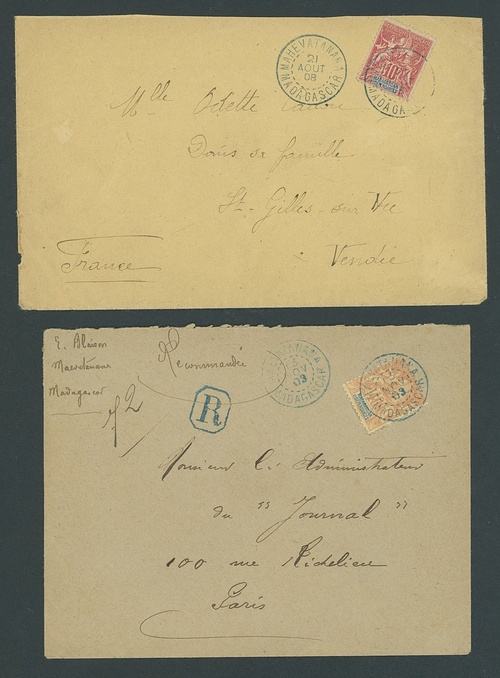 MAHEVATANANA
21
AOUT
08
MADAGASCAR
10
MADAGA
Mlle Odette
Dons de famille
St-Gilles-sur Vie
Vendée
France
E. Blaison
Maevatanana
Madagascar
Recommandée
R
TANANA
OV
03
MADAGASCAR
TANANA
OV
03
MADAGASCAR
Monsieur le Administrateur
du "Journal"
100 rue Richelieu
Paris